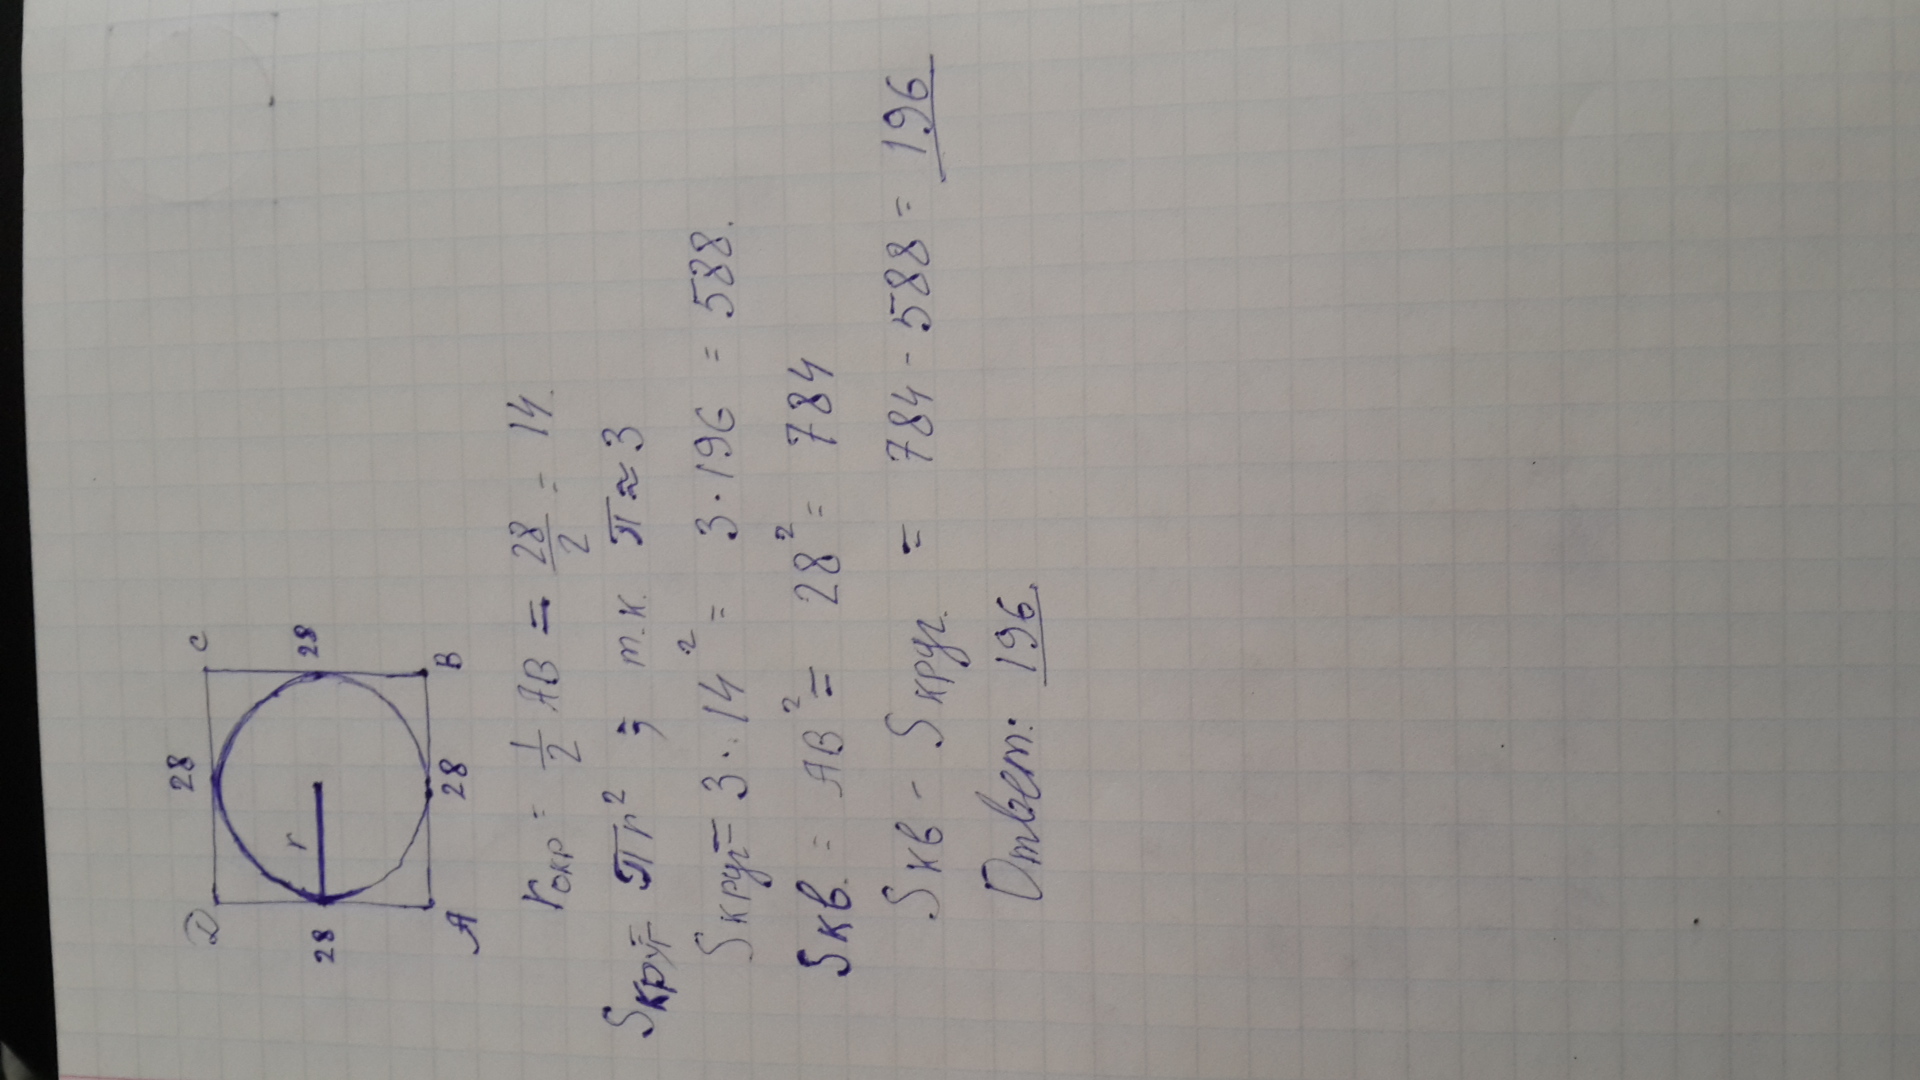 D 28 C
28 r 28
A 28 B
rокр = 1/2 AB = 28/2 = 14.
Sкруг = πr² ; т.к π≈3
Sкруг = 3·14² = 3·196 = 588.
Sкв. = AB² = 28² = 784
Sкв - Sкруг. = 784 - 588 = 196
Ответ: 196.